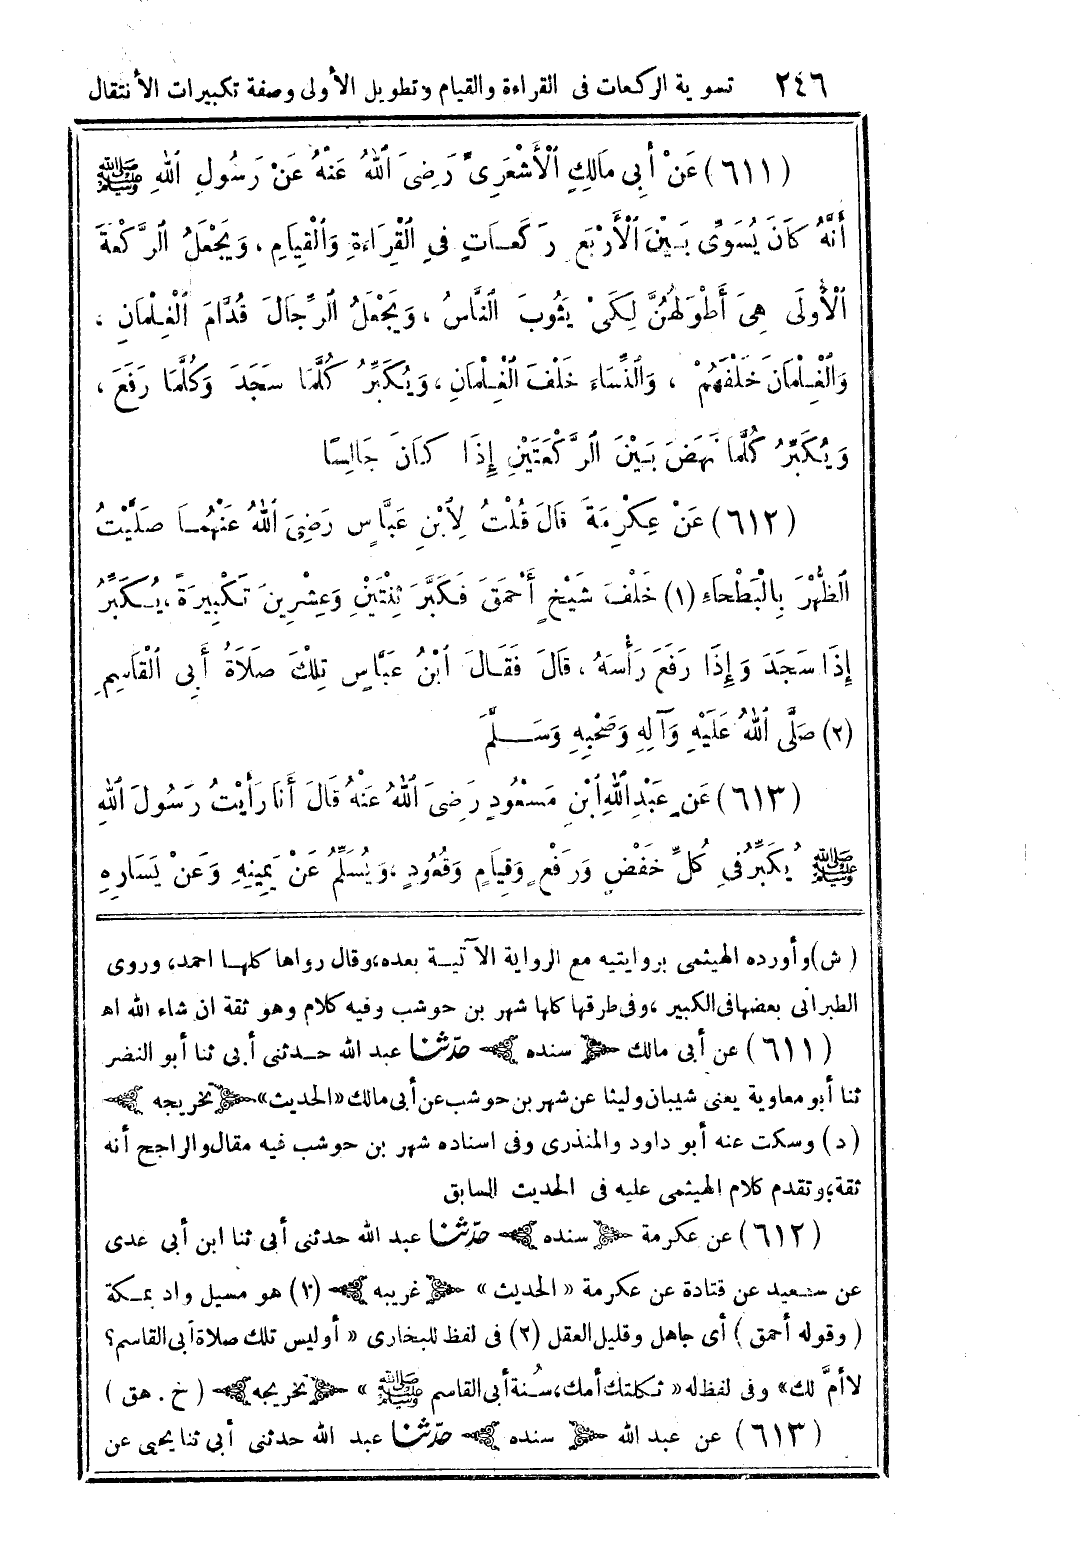 ٢٤٦ تسوية الركعات في القراءة والقيام وتطويل الأولى وصفة تكبيرات الأنتقال
(٦١١) عَنْ أَبِي مَالِكٍ ٱلْأَشْعَرِىِّ رَضِىَ ٱللهُ عَنْهُ عَنْ رَسُولِ ٱللهِ ﷺ
أَنَّهُ كَانَ يُسَوِّى بَيْنَ ٱلْأَرْبَعِ رَكَعَاتٍ فِي ٱلْقِرَاءَةِ وَٱلْقِيَامِ، وَيَجْعَلُ ٱلرَّكْعَةَ
ٱلْأُولَى هِىَ أَطْوَلَهُنَّ لِكَىْ يَثُوبَ ٱلنَّاسُ، وَيَجْعَلُ ٱلرِّجَالَ قُدَّامَ ٱلْغِلْمَانِ،
وَٱلْغِلْمَانَ خَلْفَهُمْ، وَٱلنِّسَاءَ خَلْفَ ٱلْغِلْمَانِ، وَيُكَبِّرُ كُلَّمَا سَجَدَ وَكُلَّمَا رَفَعَ،
وَيُكَبِّرُ كُلَّمَا نَهَضَ بَيْنَ ٱلرَّكْعَتَيْنِ إِذَا كَانَ جَالِسًا
(٦١٢) عَنْ عِكْرِمَةَ قَالَ قُلْتُ لِٱبْنِ عَبَّاسٍ رَضِىَ ٱللهُ عَنْهُمَا صَلَّيْتُ
ٱلظُّهْرَ بِالْبَطْحَاءِ (١) خَلْفَ شَيْخٍ أَحْمَقَ فَكَبَّرَ ثِنْتَيْنِ وَعِشْرِينَ تَكْبِيرَةً، يُكَبِّرُ
إِذَا سَجَدَ وَإِذَا رَفَعَ رَأْسَهُ، قَالَ فَقَالَ ٱبْنُ عَبَّاسٍ تِلْكَ صَلَاةُ أَبِى ٱلْقَاسِمِ
(٢) صَلَّى ٱللهُ عَلَيْهِ وَآلِهِ وَصَحْبِهِ وَسَلَّمَ
(٦١٣) عَنْ عَبْدِ اللهِ ٱبْنِ مَسْعُودٍ رَضِىَ ٱللهُ عَنْهُ قَالَ أَنَا رَأَيْتُ رَسُولَ ٱللهِ
ﷺ يُكَبِّرُ فِي كُلِّ خَفْضٍ وَرَفْعٍ وَقِيَامٍ وَقُعُودٍ، وَيُسَلِّمُ عَنْ يَمِينِهِ وَعَنْ يَسَارِهِ
(ش) وأورده الهيثمى بروايتيه مع الرواية الآتية بعده، وقال رواها كلها احمد، وروى
الطبرانى بعضها فى الكبير، وفى طرقها كلها شهر بن حوشب وفيه كلام وهو ثقة ان شاء الله اه
(٦١١) عن أبى مالك سنده حدّثنا عبد الله حدثنى أبى ثنا أبو النضر
ثنا أبو معاوية يعنى شيبان وليثا عن شهر بن حوشب عن أبى مالك «الحديث» تخريجه
(د) وسكت عنه أبو داود والمنذرى وفى اسناده شهر بن حوشب فيه مقال والراجح أنه
ثقة، وتقدم كلام الهيثمى عليه فى الحديث السابق
(٦١٢) عن عكرمة سنده حدّثنا عبد الله حدثنى أبى ثنا ابن أبى عدى
عن سعيد عن قتادة عن عكرمة «الحديث» غريبه (١) هو مسيل واد بمكة
(وقوله أحمق) أى جاهل وقليل العقل (٢) فى لفظ للبخارى «أوليس تلك صلاة أبى القاسم؟
لا أمَّ لك» وفى لفظ له «ثكلتك أمك، سُنة أبى القاسم ﷺ» تخريجه (خ. هق)
(٦١٣) عن عبد الله سنده حدّثنا عبد الله حدثنى أبى ثنا يحيى عن